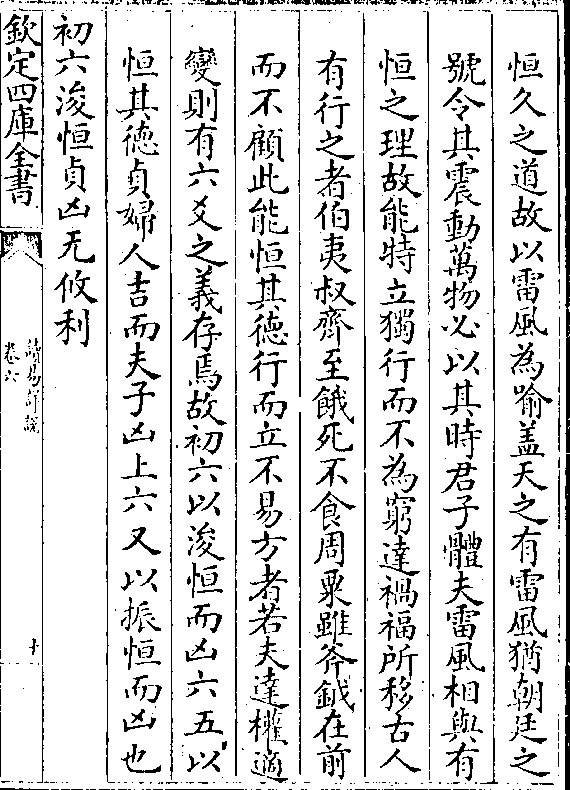 恒久之道故以雷風為喻蓋天之有雷風猶朝廷之
號令其震動萬物必以其時君子體夫雷風相與有
恒之理故能特立獨行而不為窮達禍福所移古人
有行之者伯夷叔齊至餓死不食周粟雖斧鉞在前
而不顧此能恒其徳行而立不易方者若夫達權適
變則有六爻之義存焉故初六以浚恒而凶六五以
恒其徳貞婦人吉而夫子凶上六又以振恒而凶也
初六浚恒貞凶无攸利
欽定四庫全書
讀易詳說
卷六
十